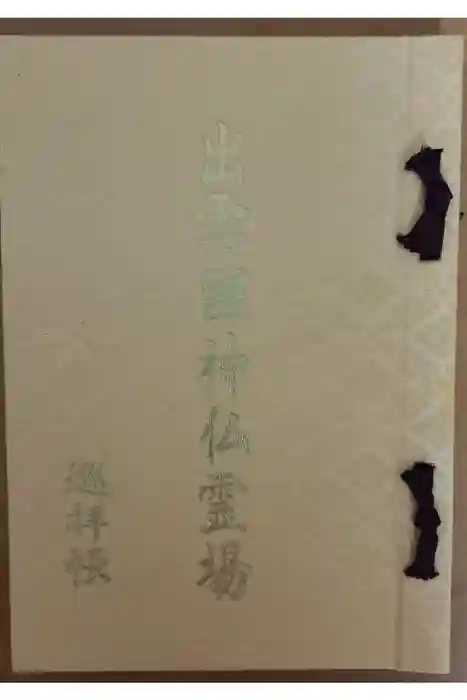 出雲國神仏霊場
巡拝帳